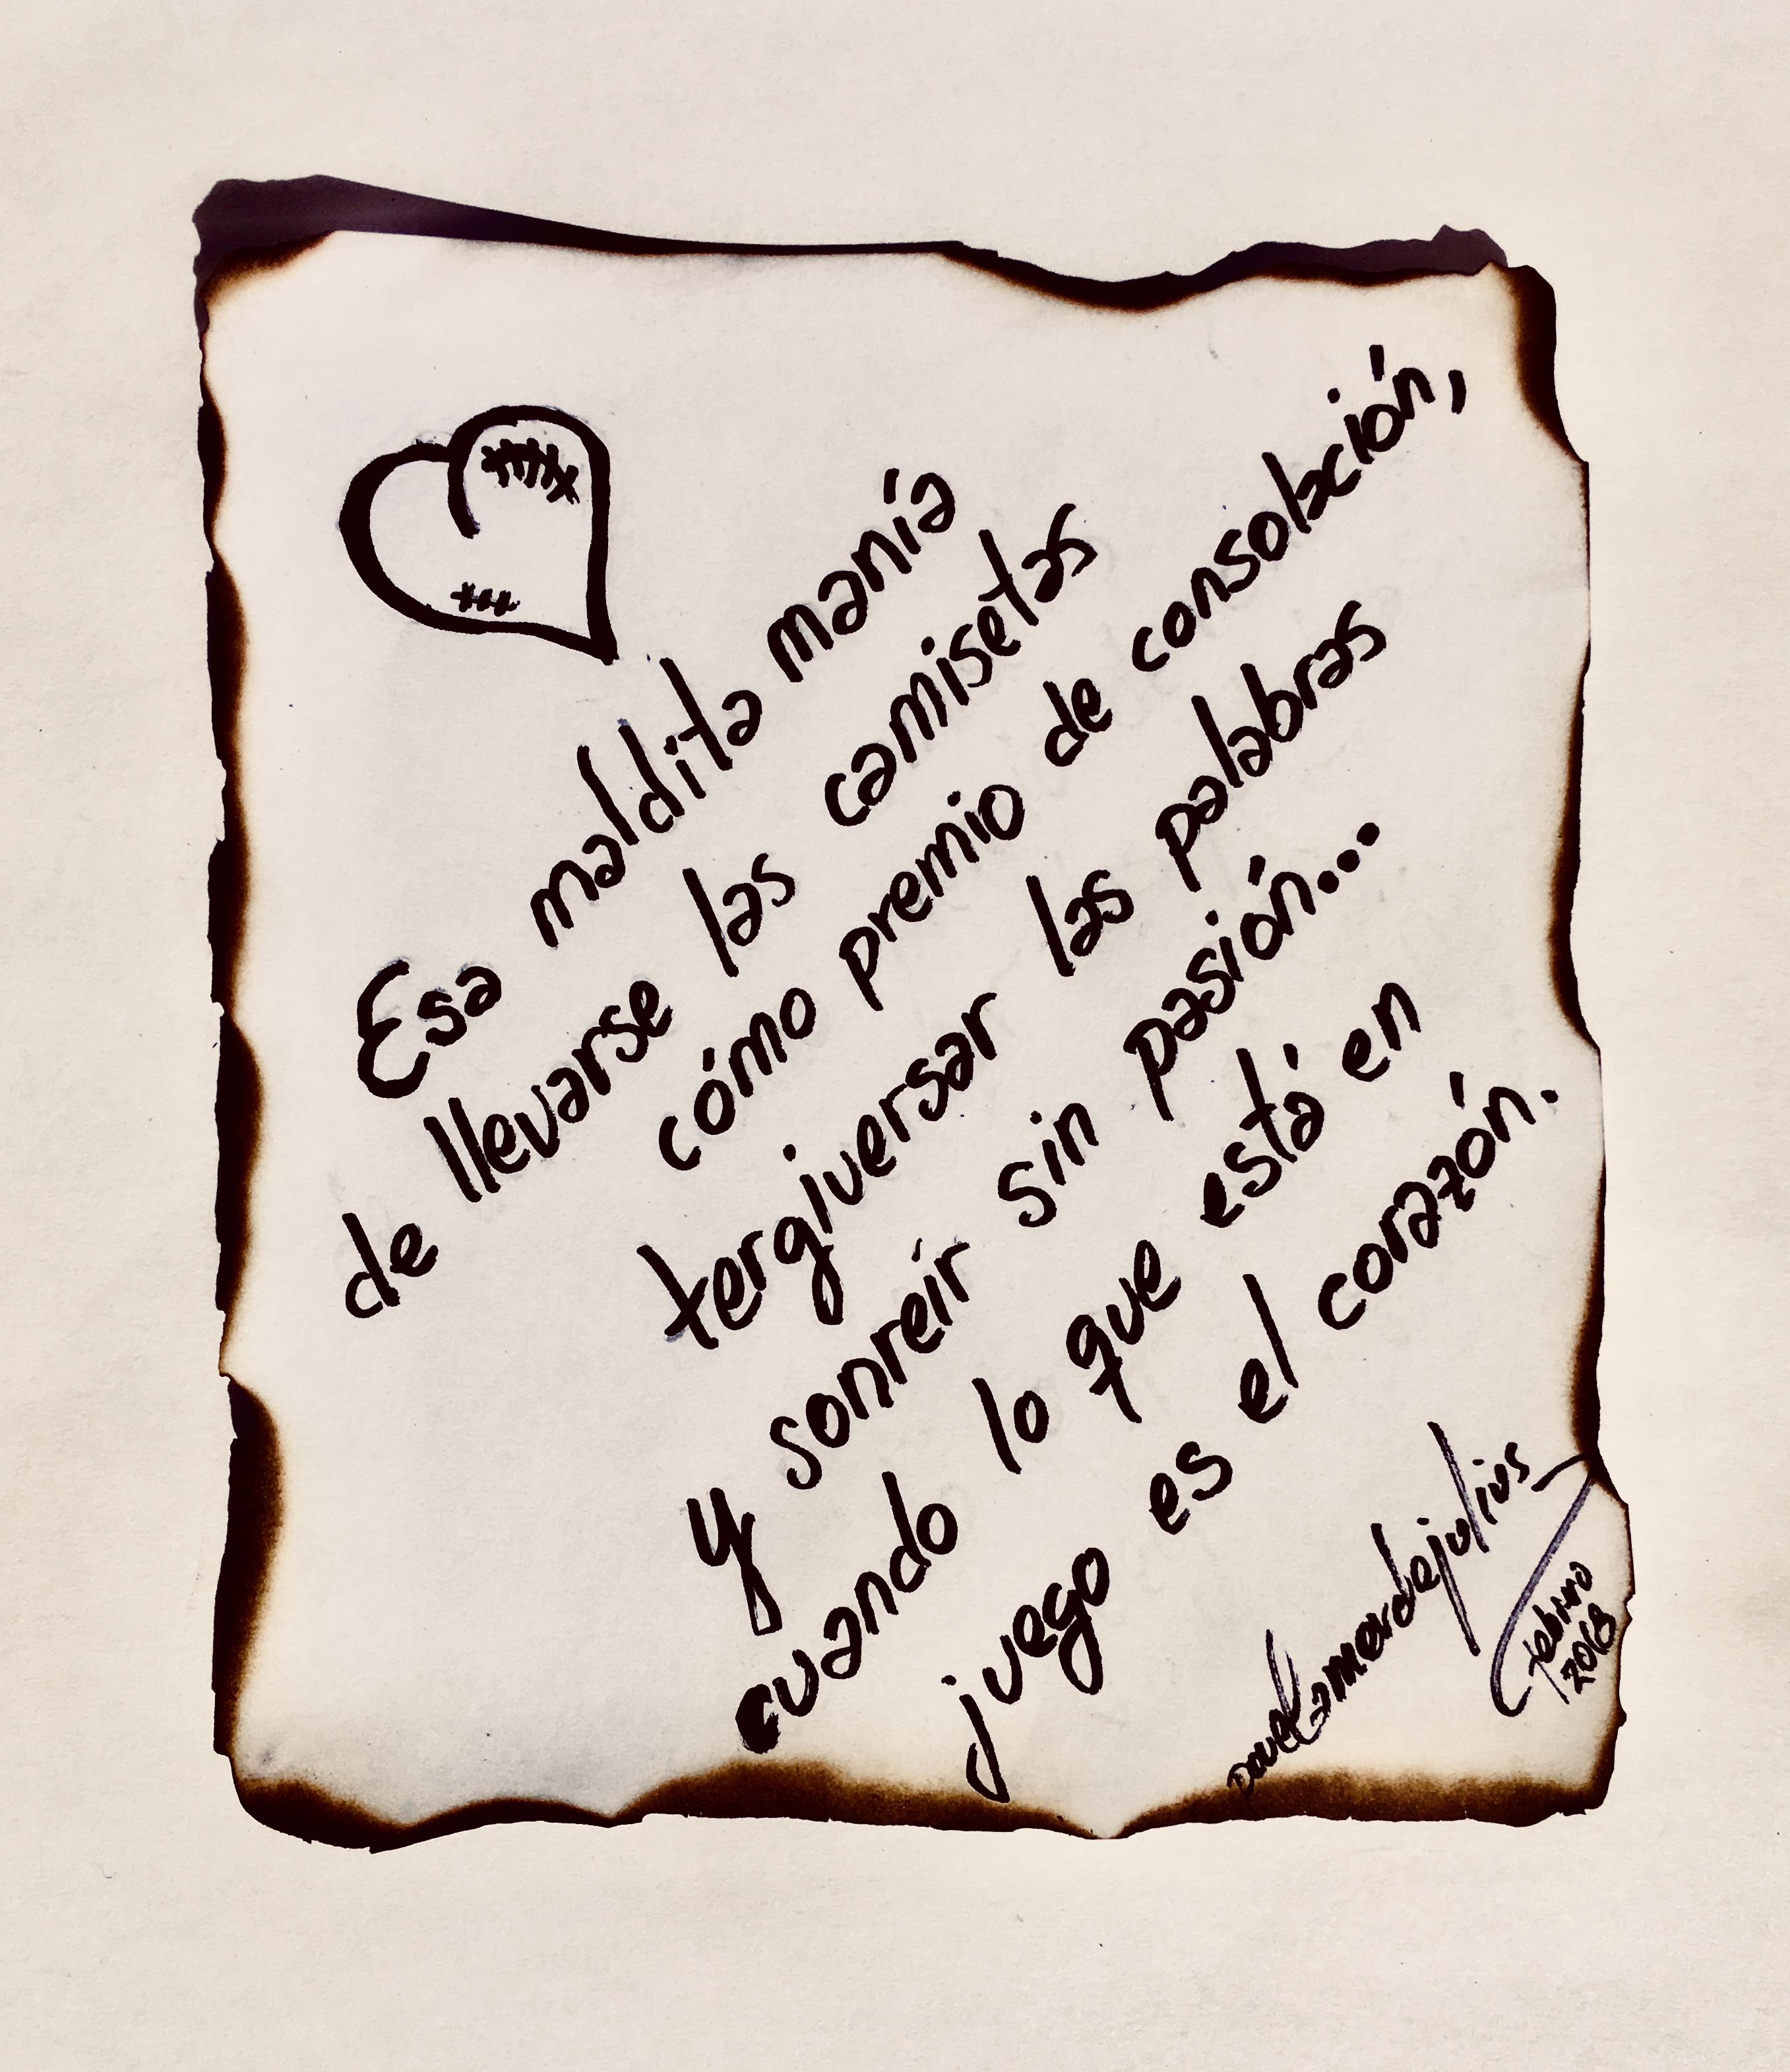 Esa maldita manía
de llevarse las camisetas
cómo premio de consolación,
tergiversar las palabras
y sonreír sin pasión...
cuando lo que está en
juego es el corazón.
febrero
2018